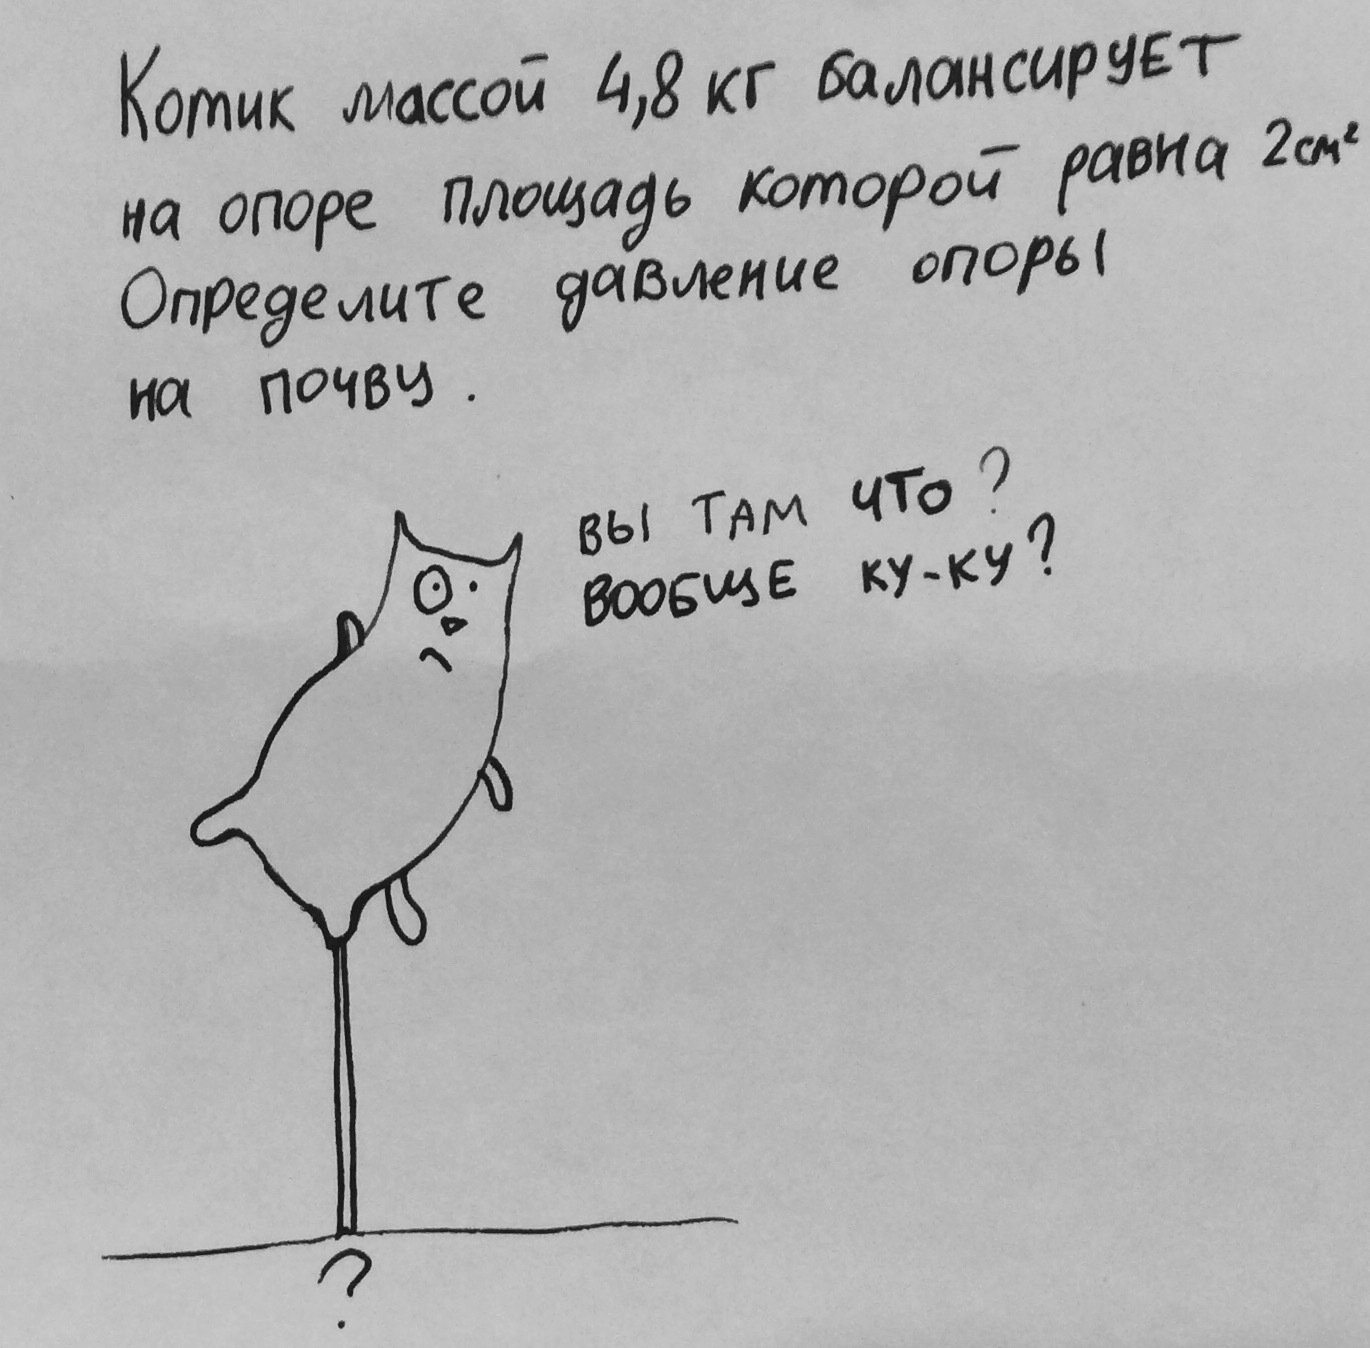 Котик массой 4,8 кг балансирует
на опоре площадь которой равна 2см²
Определите давление опоры
на почву.
ВЫ ТАМ ЧТО?
ВООБЩЕ КУ-КУ?
?